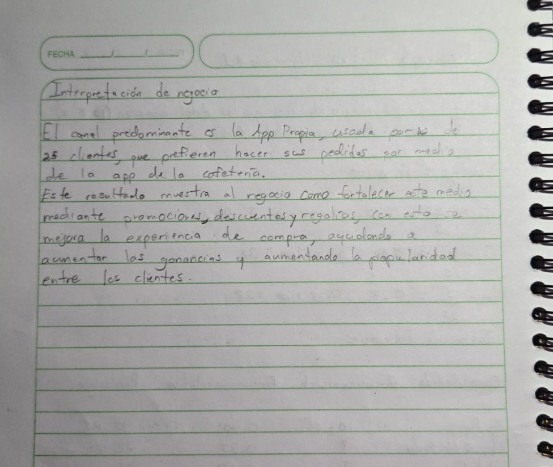 FECHA
Interpretación de negocio
El canal predominante es la App Propia, usada por de
25 clientes, que prefieren hacer sus pedidos por medio
de la app de la cafetería.
Este resultado muestra al negocio como fortalecer este medio
mediante promociones, descuentos y regalos, con esto se
mejora la experiencia de compra, ayudando a
aumentar las ganancias y aumentando la popularidad
entre los clientes.